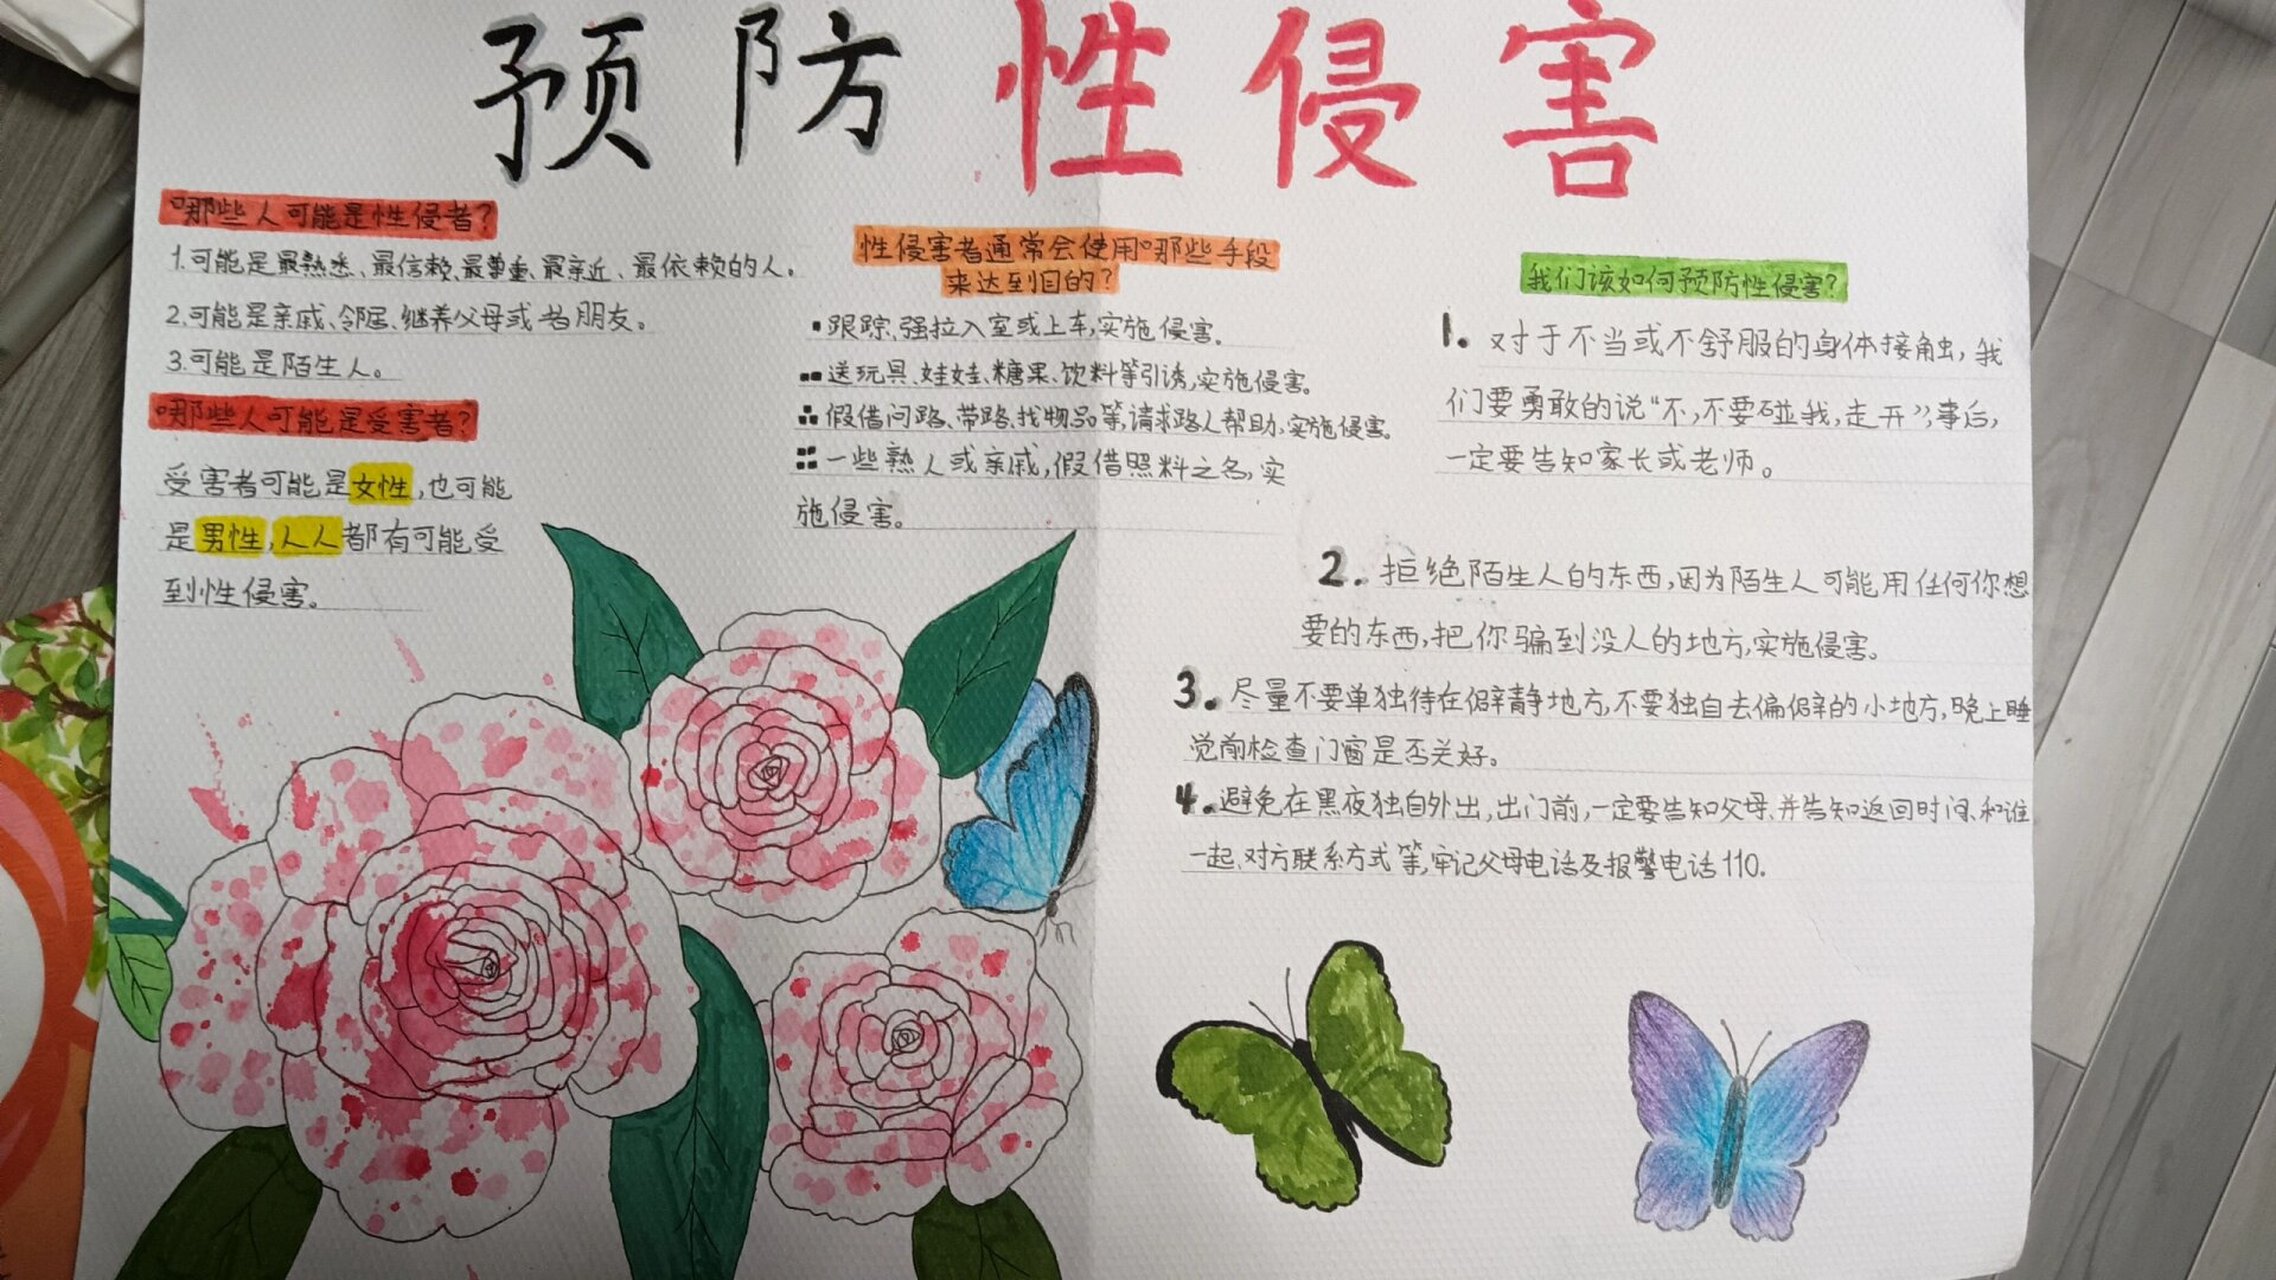 预防性侵害
哪些人可能是性侵者?
1.可能是最熟悉、最信赖、最尊重、最亲近、最依赖的人。
2.可能是亲戚、邻居、继养父母或者朋友。
3.可能是陌生人。
哪些人可能是受害者?
受害者可能是女性,也可能
是男性,人人都有可能受
到性侵害。
性侵害者通常会使用哪些手段
来达到目的?
跟踪、强拉入室或上车,实施侵害。
送玩具、娃娃、糖果、饮料等引诱,实施侵害。
假借问路、带路、找物品等,请求路人帮助,实施侵害。
一些熟人或亲戚,假借照料之名,实
施侵害。
我们该如何预防性侵害?
1. 对于不当或不舒服的身体接触,我
们要勇敢的说“不,不要碰我,走开”,事后,
一定要告知家长或老师。
2. 拒绝陌生人的东西,因为陌生人可能用任何你想
要的东西,把你骗到没人的地方,实施侵害。
3. 尽量不要单独待在僻静地方,不要独自去偏僻的小地方,晚上睡
觉前检查门窗是否关好。
4. 避免在黑夜独自外出,出门前,一定要告知父母、并告知返回时间、和谁
一起、对方联系方式等,牢记父母电话及报警电话110.